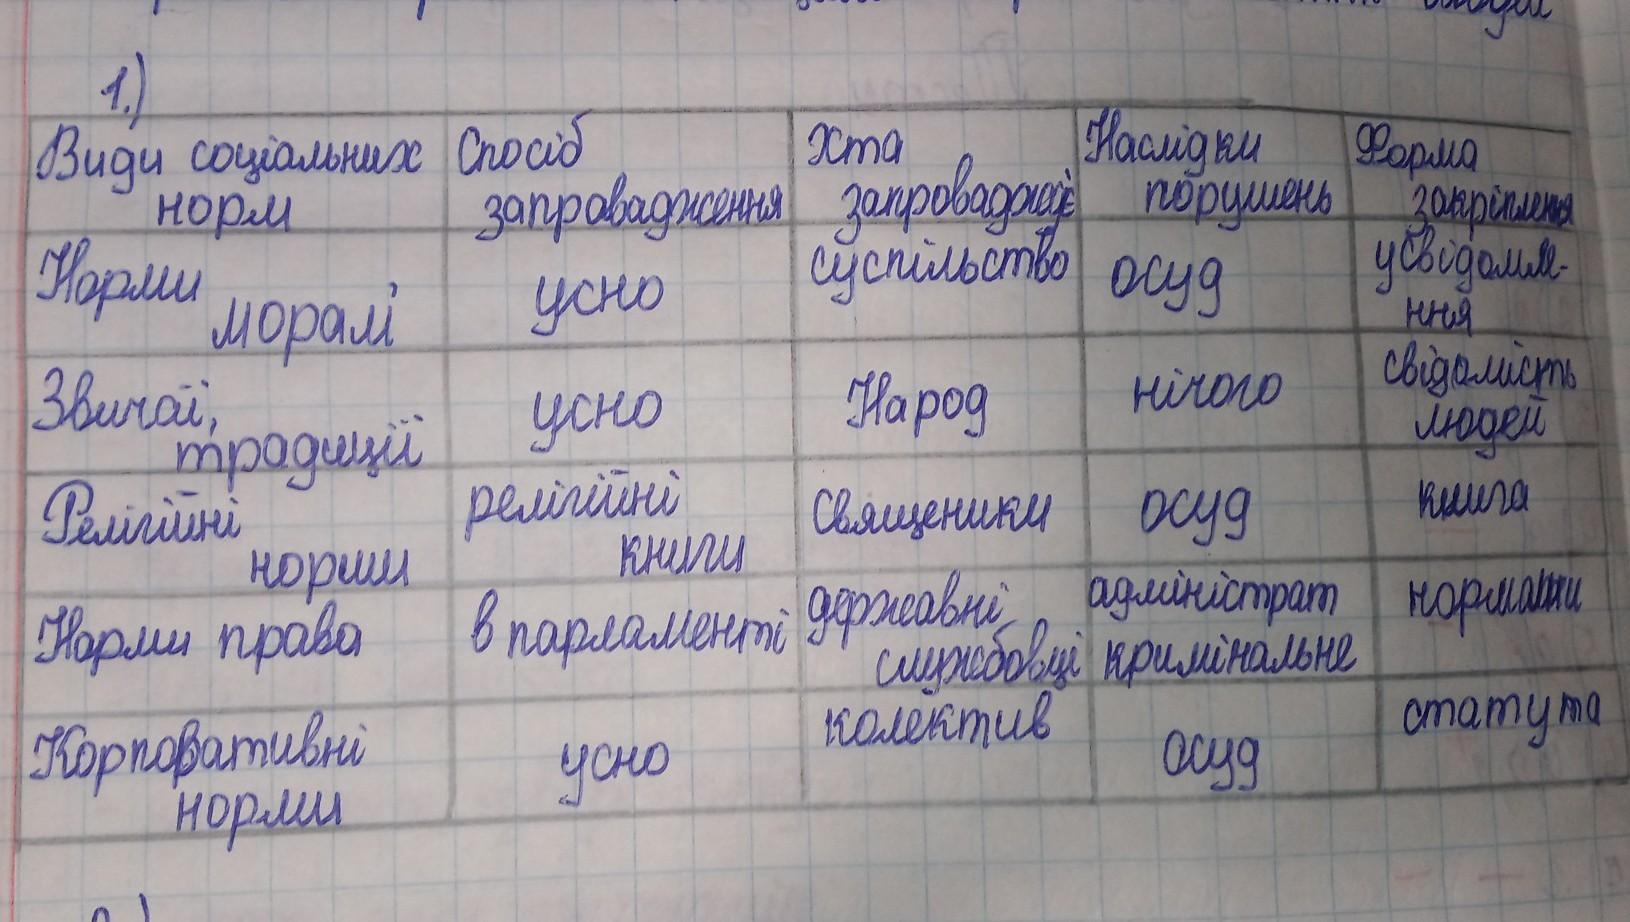 1.)
Види соціальних норм
Спосіб запровадження
Хта запроваджує
Наслідки порушень
Форма закріплення
Норми моралі
усно
суспільство
осуд
усвідомле-
ння
Звичаї, традиції
усно
Народ
нічого
свідомість людей
Релігійні норми
релігійні книги
Священики
осуд
книга
Норми права
в парламенті
державні службовці
адміністрат кримінальне
Корпоративні норми
усно
колектив
осуд
статута